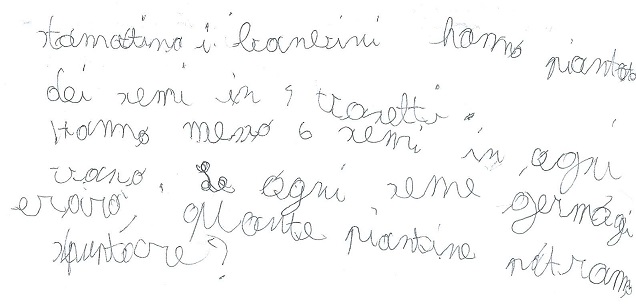 stamattina i bambini hanno piantato
dei semi in 5 vasetti
Hanno messo 6 semi in ogni
vaso. Se ogni seme germogli
erà, quante piantine potranno
spuntare?